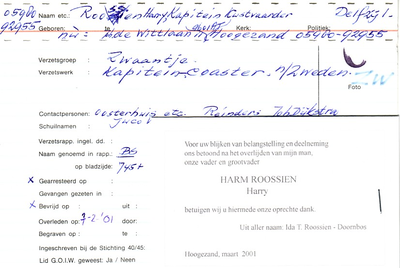 05980 Naam etc.: Roossien Harry, Kapitein Kustvaarder Delfzijl-
92955 Geboren: te Kerk: Politiek:
nu: de Wittlaan Hoogezand 05980-92955
Verzetsgroep : Zwaantje.
Verzetswerk : Kapitein-Coaster. n/Zweden.
ZW
Foto
Contactpersonen: Oosterhuis etc Reinders Joh Dijkstra
Schuilnamen :
Verzetsrapp. ingel. dd. :
Naam genoemd in rapp.: BS
op bladzijde: 745+
x Gearresteerd op :
Gevangen gezeten in :
x Bevrijd op : uit :
Overleden op : 7-2-'01 door :
Begraven op : te :
Ingeschreven bij de Stichting 40/45:
Lid G.O.I.W. geweest: Ja / Neen
Voor uw blijken van belangstelling en deelneming
ons betoond na het overlijden van mijn man,
onze vader en grootvader
HARM ROOSSIEN
Harry
betuigen wij u hiermede onze oprechte dank.
Uit aller naam: Ida T. Roossien - Doornbos
Hoogezand, maart 2001